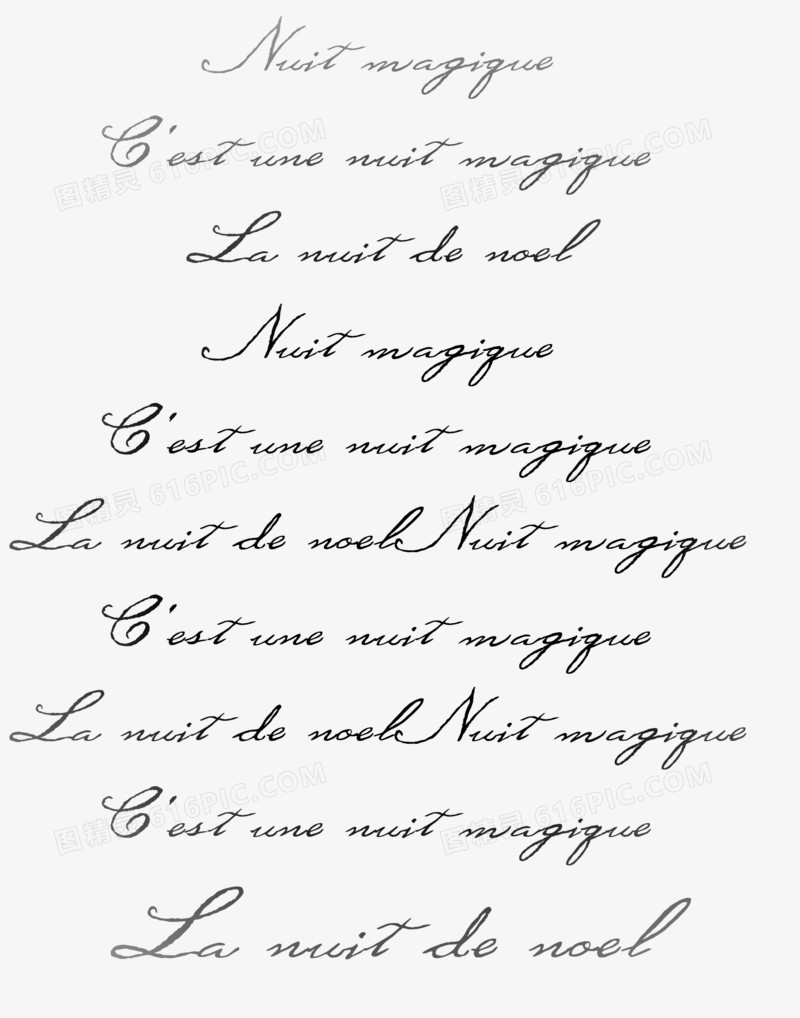 Nuit magique
C'est une nuit magique
La nuit de noel
Nuit magique
C'est une nuit magique
La nuit de noelNuit magique
C'est une nuit magique
La nuit de noelNuit magique
C'est une nuit magique
La nuit de noel
图精灵 616PIC.COM
图精灵 616PIC.COM
图精灵 616PIC.COM
图精灵 616PIC.COM
图精灵 616PIC.COM
图精灵 616PIC.COM